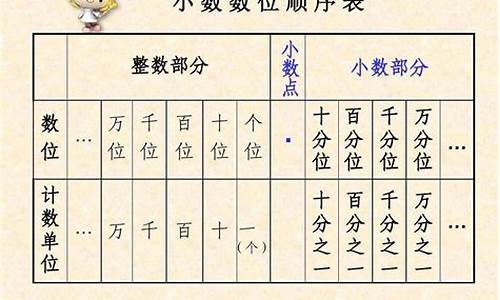 小数数位顺序表
整数部分 小数点 小数部分
数位 … 万位 千位 百位 十位 个位 · 十分位 百分位 千分位 万分位 …
计数单位 … 万 千 百 十 一(个) 十分之一 百分之一 千分之一 万分之一 …